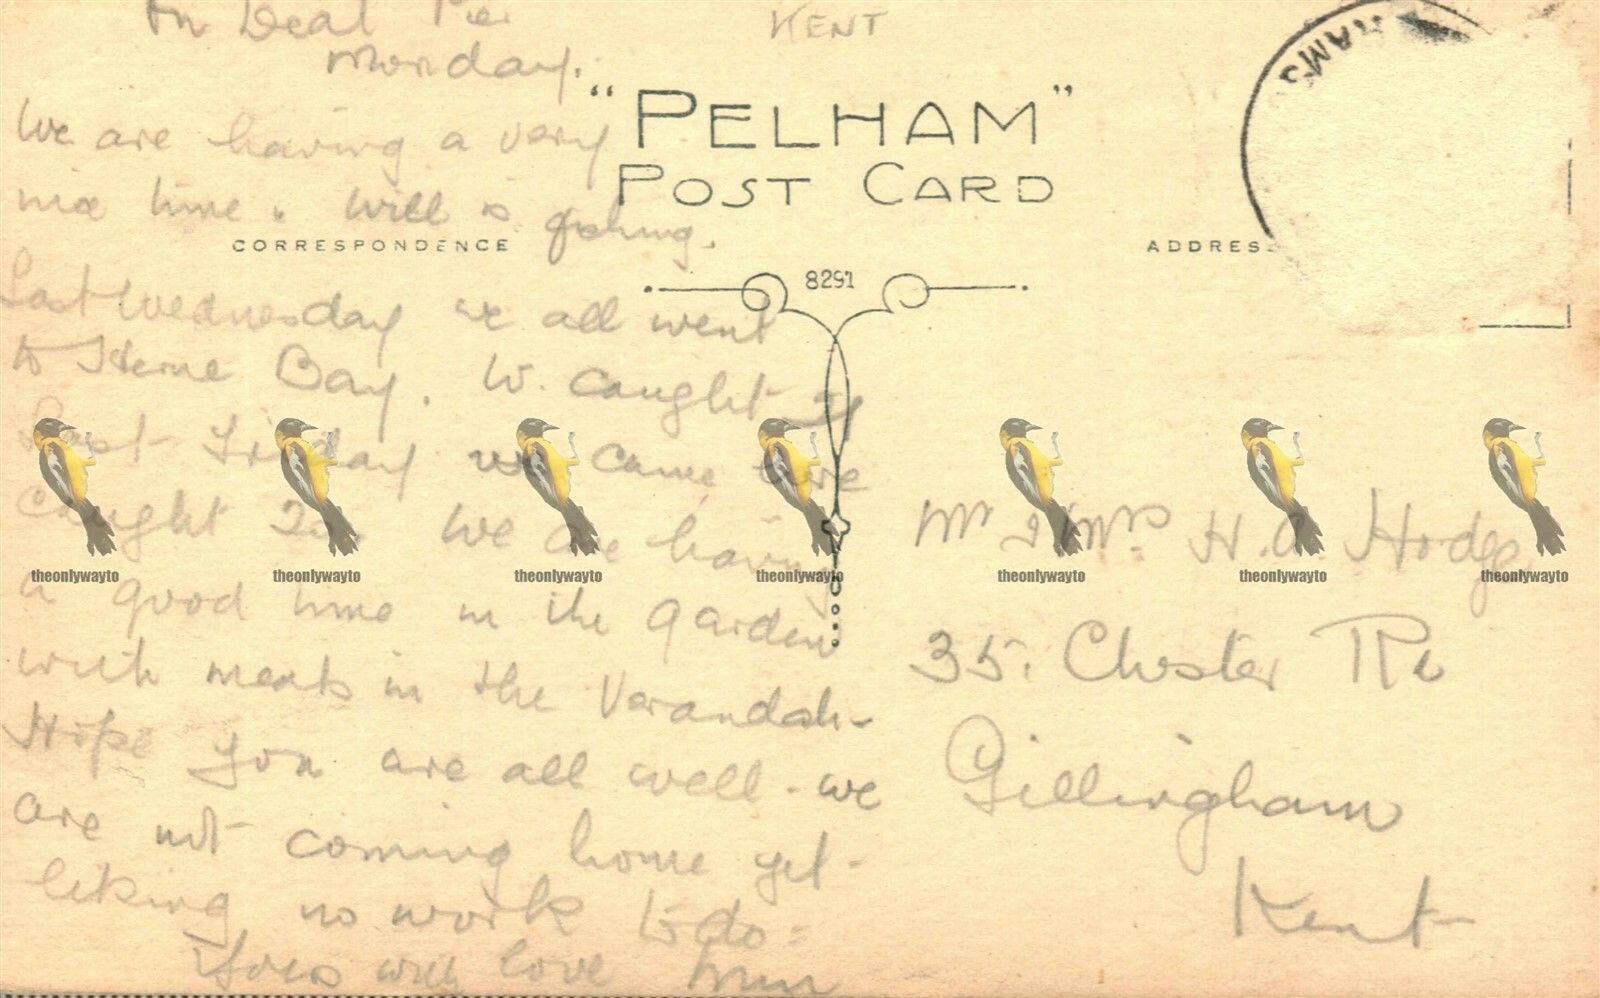 On Deal Pier
Monday.
We are having a very
nice time. Will is fishing.
Last Wednesday we all went
to Herne Bay. W. caught 31
Last Friday we came here
caught 25. We are having
a good time in the garden
with meals in the Verandah -
Hope you are all well. we
are not coming home yet -
liking no work to do -
Yours with love
KENT
"PELHAM"
POST CARD
CORRESPONDENCE
8291
ADDRES
HAMS
Mr & Mrs. H. A. Hodge
35. Chester Rd
Gillingham
Kent
theonlywayto theonlywayto theonlywayto theonlywayto theonlywayto theonlywayto theonlywayto